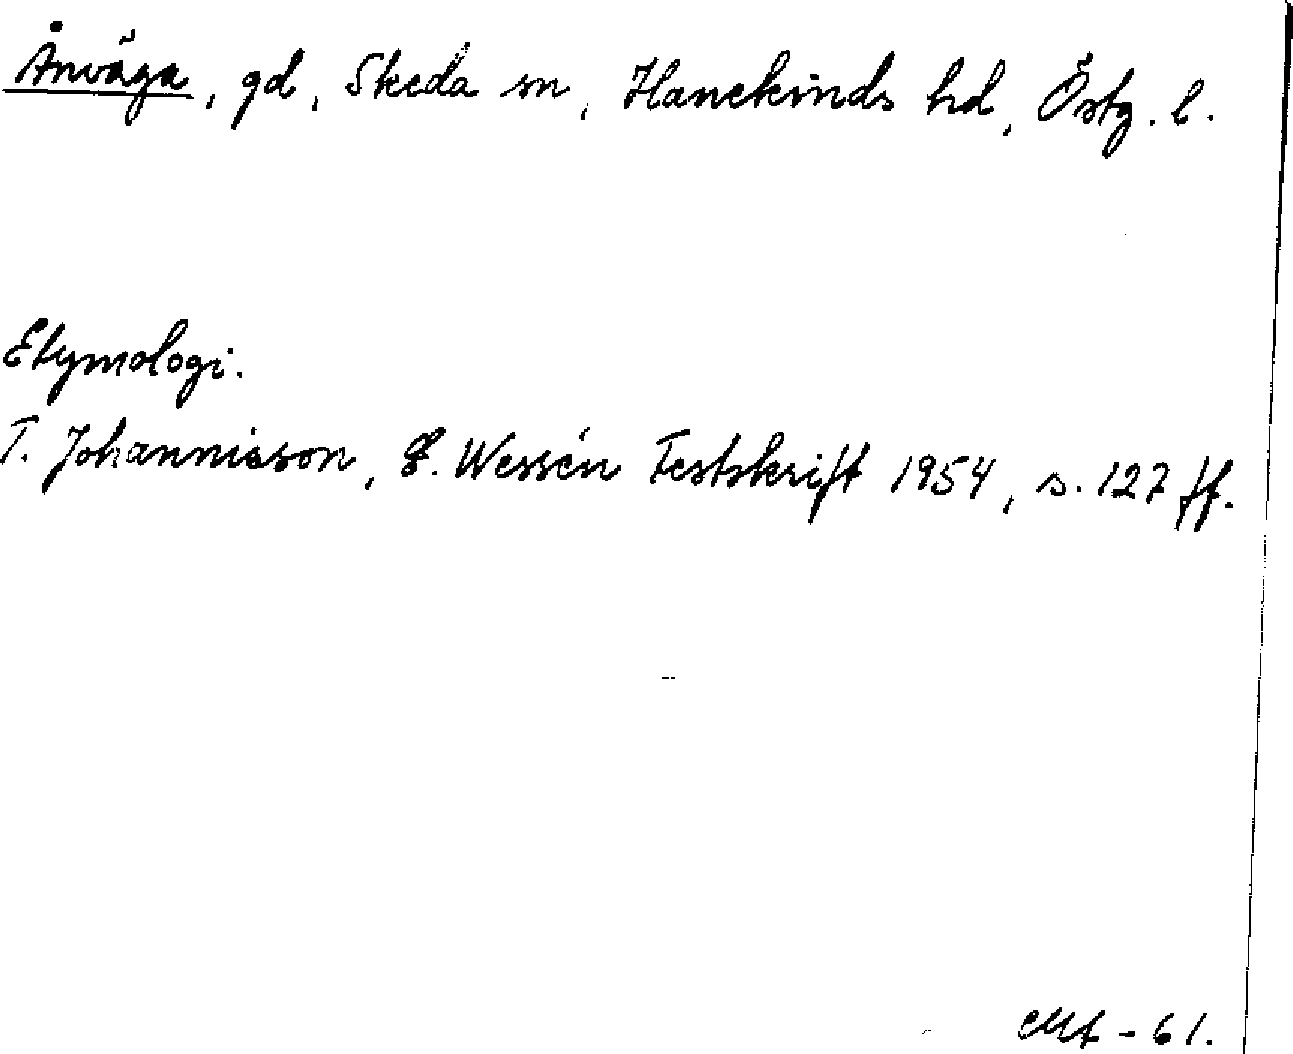 Ånväga, gd, Skeda sn, Hanekinds hd, Östg. l.
Etymologi.
T. Johannisson, E. Wessén Festskrift 1954, s. 127 ff.
- 61.